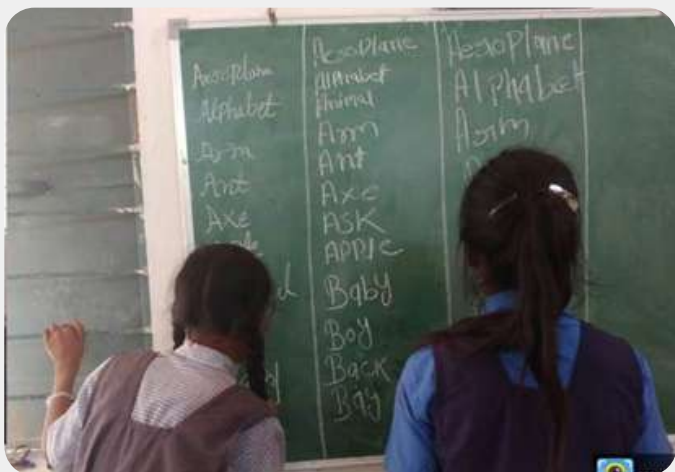 Aeroplane
Alphabet
Arm
Ant
Axe
Aeroplane
Alphabet
Animal
Arm
Ant
Axe
ASK
APPle
Baby
Boy
Back
Bay
Aeroplane
Alphabet
Arm